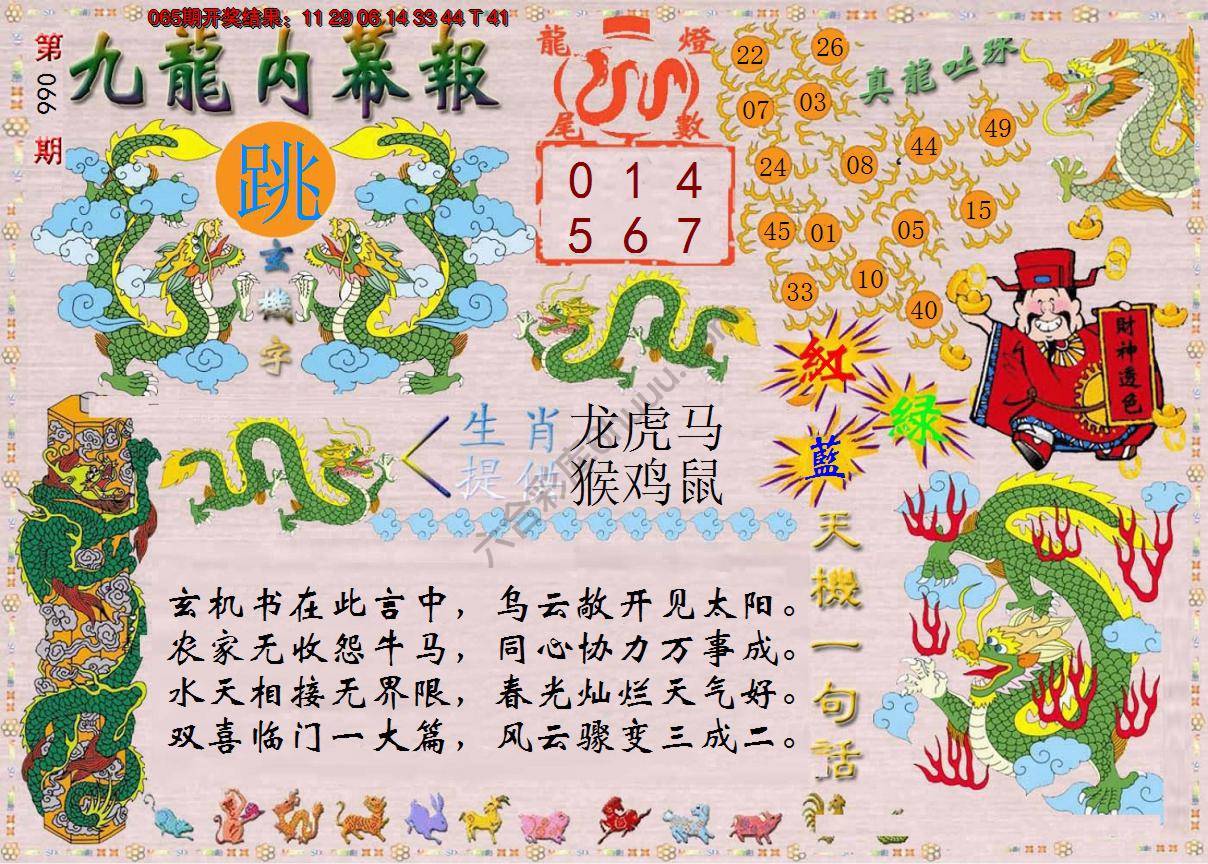 065期开奖结果：11 29 06 14 33 44 T 41
第
066
期
九龍内幕報
跳
玄
機
字
龍 燈
尾 數
0 1 4
5 6 7
真龍吐珠
22
26
07
03
24
08
44
49
45
01
05
15
33
10
40
財神透色
紅
綠
藍
生肖 龙虎马
提供 猴鸡鼠
天機一句話
玄机书在此言中，乌云敞开见太阳。
农家无收怨牛马，同心协力万事成。
水天相接无界限，春光灿烂天气好。
双喜临门一大篇，风云骤变三成二。